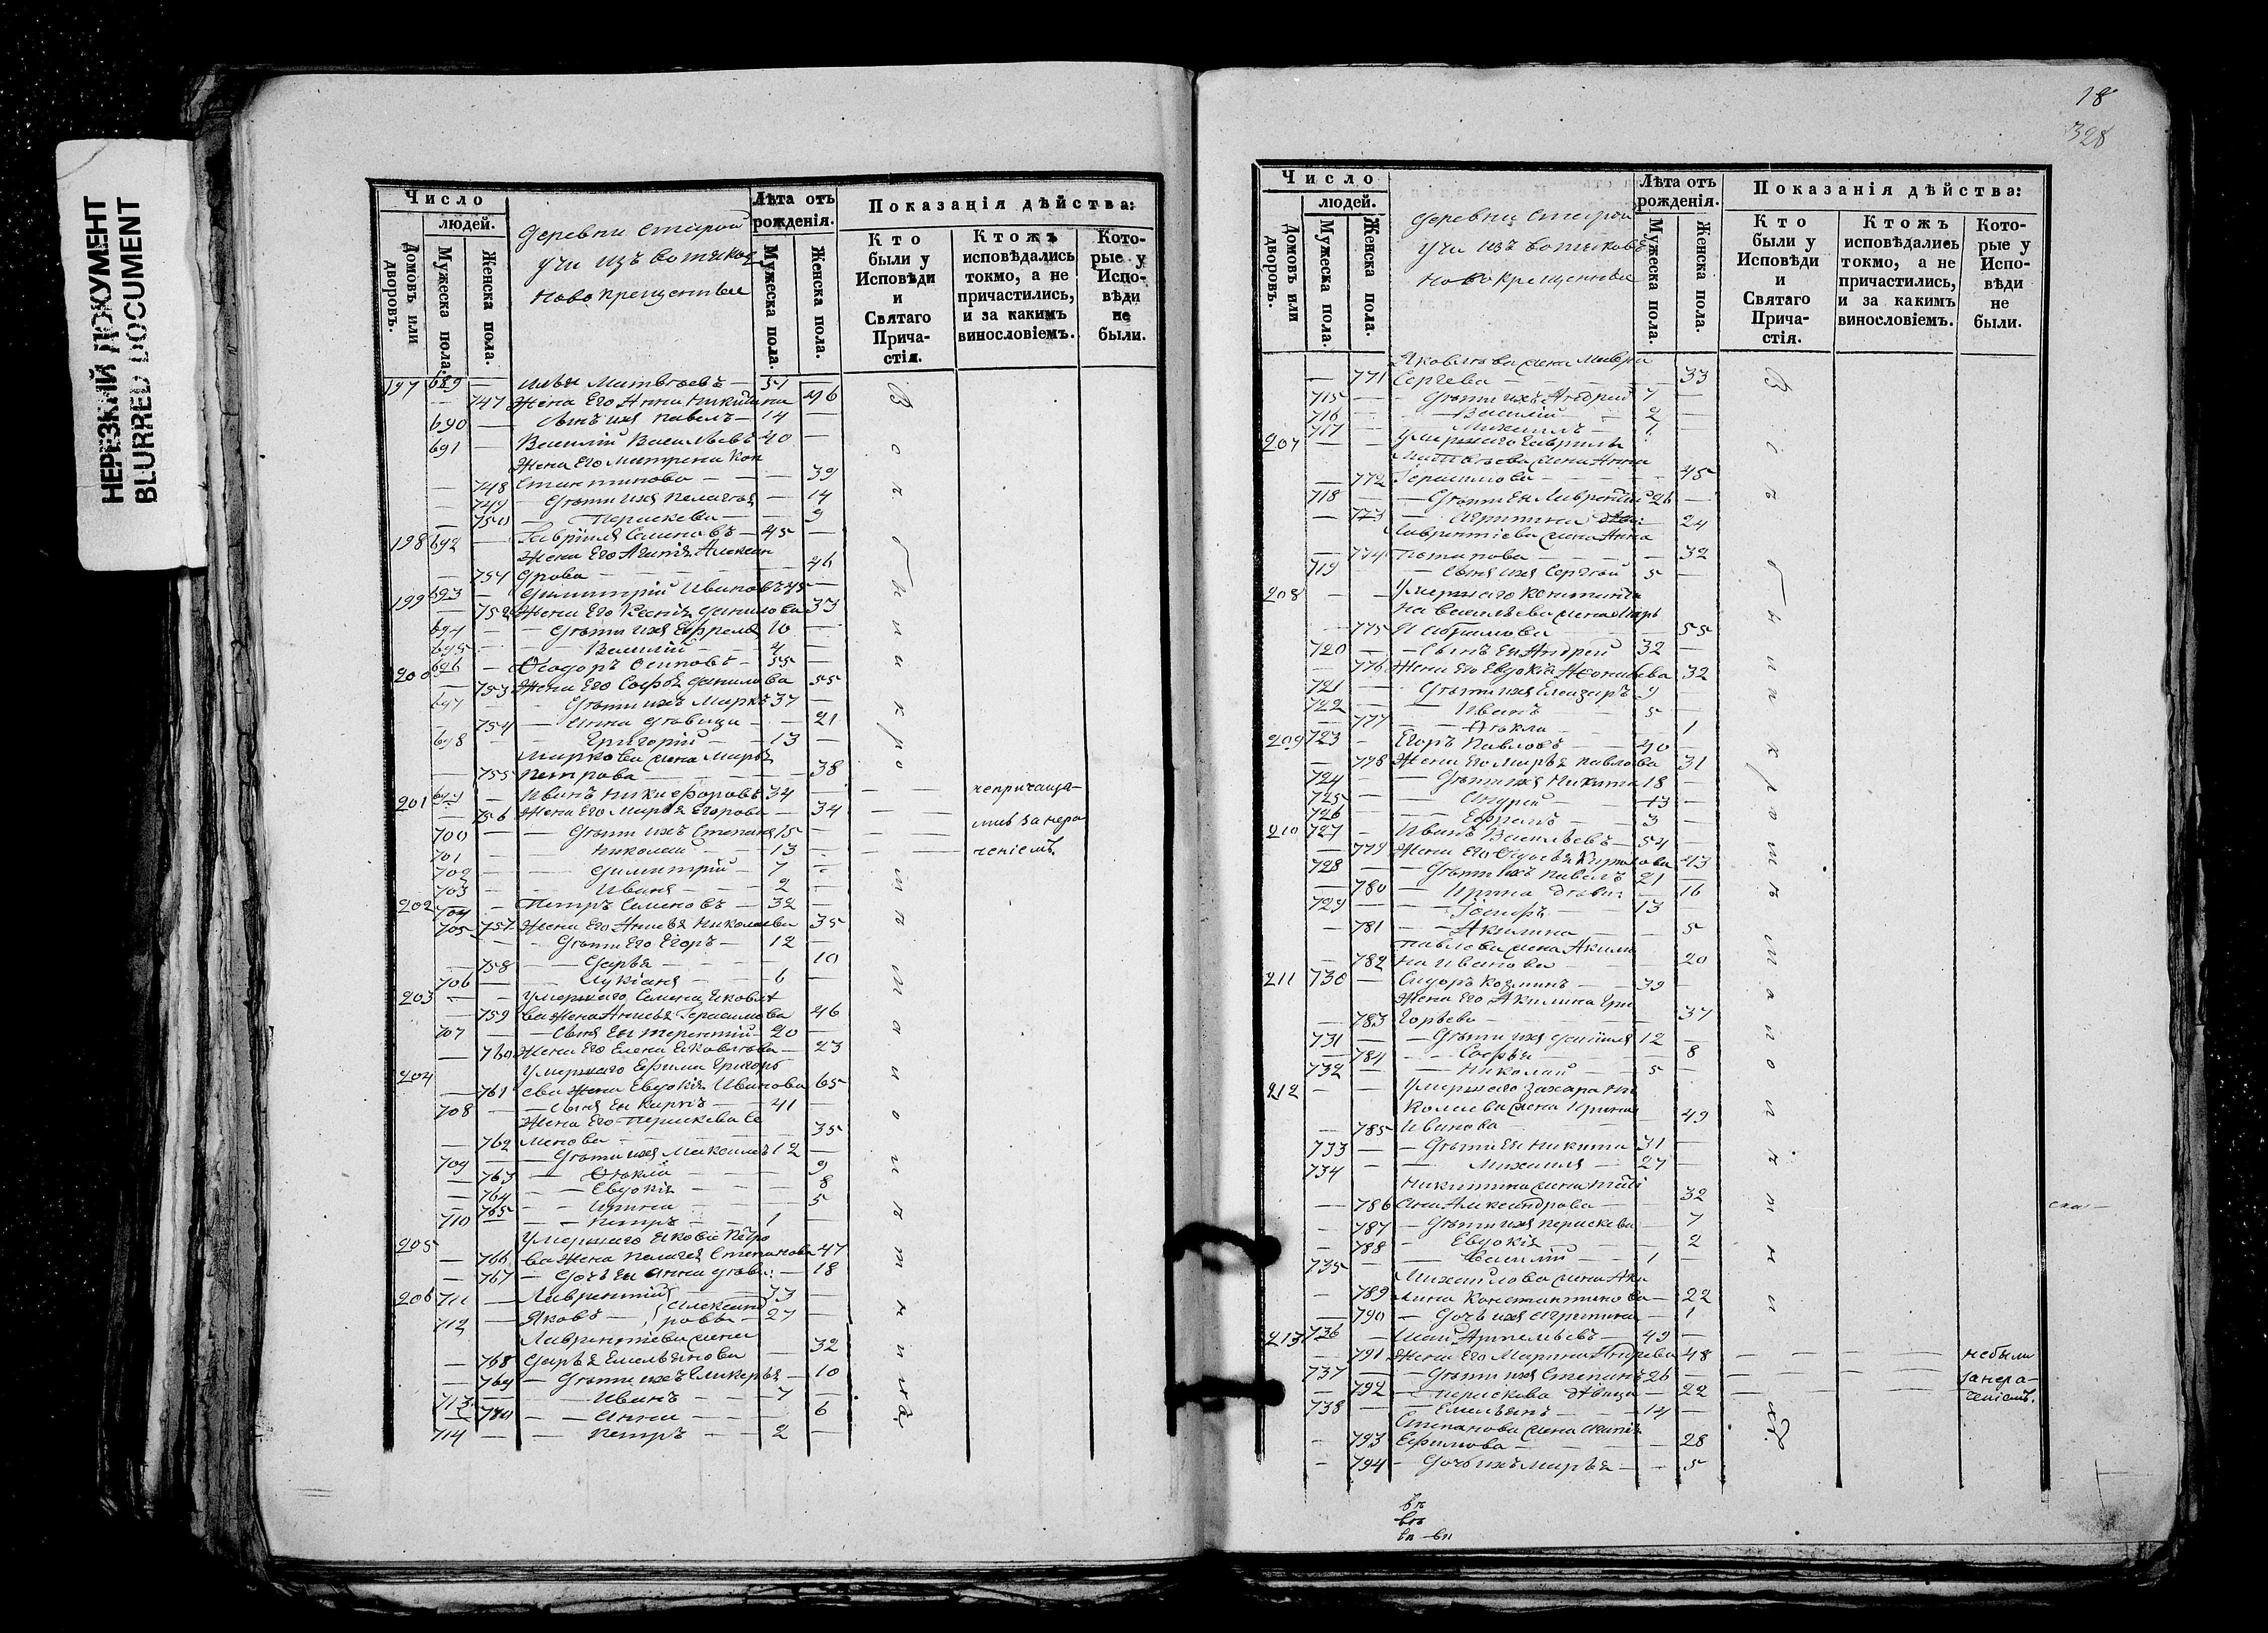 НЕРЕЗКИЙ ДОКУМЕНТ
BLURRED DOCUMENT
Число
людей.
Домовъ или дворовъ.
Мужеска пола.
Женска пола.
деревни старой
Учи изъ вотяковъ
новокрещенные
Лѣта отъ рожденія.
Мужеска пола.
Женска пола.
Показанія дѣйства:
Кто были у Исповѣди и Святаго Причастія.
Ктожъ исповѣдались токмо, а не причастились, и за какимъ винословіемъ.
Которые у Исповѣди не были.
197 689 — Илья Матвѣевъ — 51
— 747 Жена Его Анна Никитина 46
690 — Сынъ ихъ Павелъ — 14 —
691 — Василій Васильевъ 40 —
Жена Его Матрена Кон
— 748 стантинова — — 39
— 749 — Дѣти ихъ Пелагея — 14
— 750 — Параскева — — 9
198 692 — Гавріилъ Семеновъ — 45 —
Жена Его Агапія Алексан
— 751 дрова — — 46
199 693 — Димитрій Ивановъ 45 —
— 752 Жена Его Ксенія Данилова 33
694 — — Дѣти ихъ Ефремъ 10 —
695 — — Василій — 4 —
200 696 — Ѳеодоръ Осиповъ — 55 —
— 753 Жена Его Софья Данилова 55
697 — — Дѣти ихъ Марко 37 —
— 754 — Анна дѣвица — — 21
698 — — Григорій — — 13 —
Маркова жена Марья
— 755 Петрова — — 38
201 699 — Иванъ Никифоровъ 34 — — — непричаща-
— 756 Жена Его Марья Егорова — 34 — — лись за нера-
700 — — Дѣти ихъ Степанъ 15 — — —
701 — — Николай — 13 — — — ченіемъ.
702 — — Димитрій — 7 —
703 — — Иванъ — — 2 —
202 704 — Петръ Семеновъ — 32 —
705 757 Жена Его Анисья Николаева 35
— — Дѣти Его Егоръ — 12 —
— 758 — — Дарья — — 10
706 — — Лукіанъ — 6 —
203 — — Умершаго Семена Яковле
— 759 ва жена Анисья Герасимова 46
707 — — Сынъ Ея Терентій — 20 —
— 760 Жена Его Елена Яковлева — 23
204 Умершаго Ефима Григорь
— 761 ева жена Евдокія Иванова 65
708 — — Сынъ Ея Карпъ — 41 —
Жена Его Параскева Се
— 762 менова — — 35
709 — — Дѣти ихъ Максимъ 12 —
— 763 — Ѳекла — — 9
— 764 — — Евдокія — — 8
— 765 — — Ирина — — 5
710 — — — Петръ — — 1
205 Умершаго Якова Петро
— 766 ва жена Пелагея Степанова 47
— 767 — Дочь Ея Анна дѣви: — 18
206 711 — Лаврентій 33 —
712 — Яковъ — Александровы — 27 —
Лаврентіева жена
— 768 Дарья Емельянова — 32
— 769 — Дѣти ихъ Гликерья — 10
713 — — Иванъ — 7 —
— 770 — — Анна — — 6
714 — — Петръ — — 2 —
Всѣ были какъ
18
328
Число
людей.
Домовъ или дворовъ.
Мужеска пола.
Женска пола.
деревни старой
Учи изъ вотяковъ
новокрещенные
Лѣта отъ рожденія.
Мужеска пола.
Женска пола.
Показанія дѣйства:
Кто были у Исповѣди и Святаго Причастія.
Ктожъ исповѣдались токмо, а не причастились, и за какимъ винословіемъ.
Которые у Исповѣди не были.
Яковлева жена Мавра
— 771 Сергѣева — — 33
715 — — Дѣти ихъ Андрей 7 —
716 — — Василій — 2 —
717 — — Михаилъ —
207 — — Умершаго Гаврила
Матвѣева жена Анна
— 772 Герасимова — — 45
718 — — Дѣти Ея Лаврентій 26 —
— 773 — Агрипина — 24
Лаврентіева жена Анна
— 774 Потапова — — 32
719 — Сынъ ихъ Сергѣй 5 —
208 — — Умершаго Константи
на Васильева жена Марь
— 775 я Абрамова — — 55
720 — — Сынъ Ея Андрей 32 —
— 776 Жена Его Евдокія Леонтьева 32
721 — — Дѣти ихъ Елеазаръ 9 —
722 — — Иванъ — 5 —
— 777 — — Ѳекла — — 1
209 723 — Егоръ Павловъ — 40 —
— 778 Жена Его Марья Павлова 31
724 — — Дѣти ихъ Никита 18 —
725 — — Андрей — 13 —
726 — — Ефремъ — 3 —
210 727 — Иванъ Васильевъ — 54 —
— 779 Жена Его Ѳедосья Кирилова 43
728 — — Дѣти ихъ Павелъ 21 —
— 780 — Ирина дѣви: — 16
729 — — Іосифъ — 13
— 781 — — Акилина — — 5
Павлова жена Акили
— 782 на Иванова — — 20
211 730 — Сидоръ Козминъ — 39 —
Жена Его Акилина Гри
— 783 горьева — — 37
731 — — Дѣти ихъ Даніилъ 12 —
— 784 — — Софья — — 8
732 — — Николай — 5 —
212 — — Умершаго Захара Ни
колаева жена Ирина
— 785 Иванова — — 49
733 — — Дѣти Ея Никита 31 —
734 — — Михаилъ — 27 —
Никитина жена Таті
— 786 ана Александрова — — 32
— 787 — Дѣти ихъ Параскева — 7
— 788 — Евдокія — — 2
735 — — Василій — 1 —
Михайлова жена Аки
— 789 лина Константинова — 22
— 790 — Дочь ихъ Агрипина — 1
213 736 — Артемьевъ — 49 —
— 791 Жена Его Марина Андреева 48 — — — небыли
737 — — Дѣти ихъ Степанъ 26 — — — — за нера-
— 792 — Параскева дѣвица — 22 — — — ченіемъ.
738 — — Емельянъ — 14 —
Степанова жена Агапія
— 793 Ефимова — — 28
— 794 — Дочь ихъ Марья — — 5